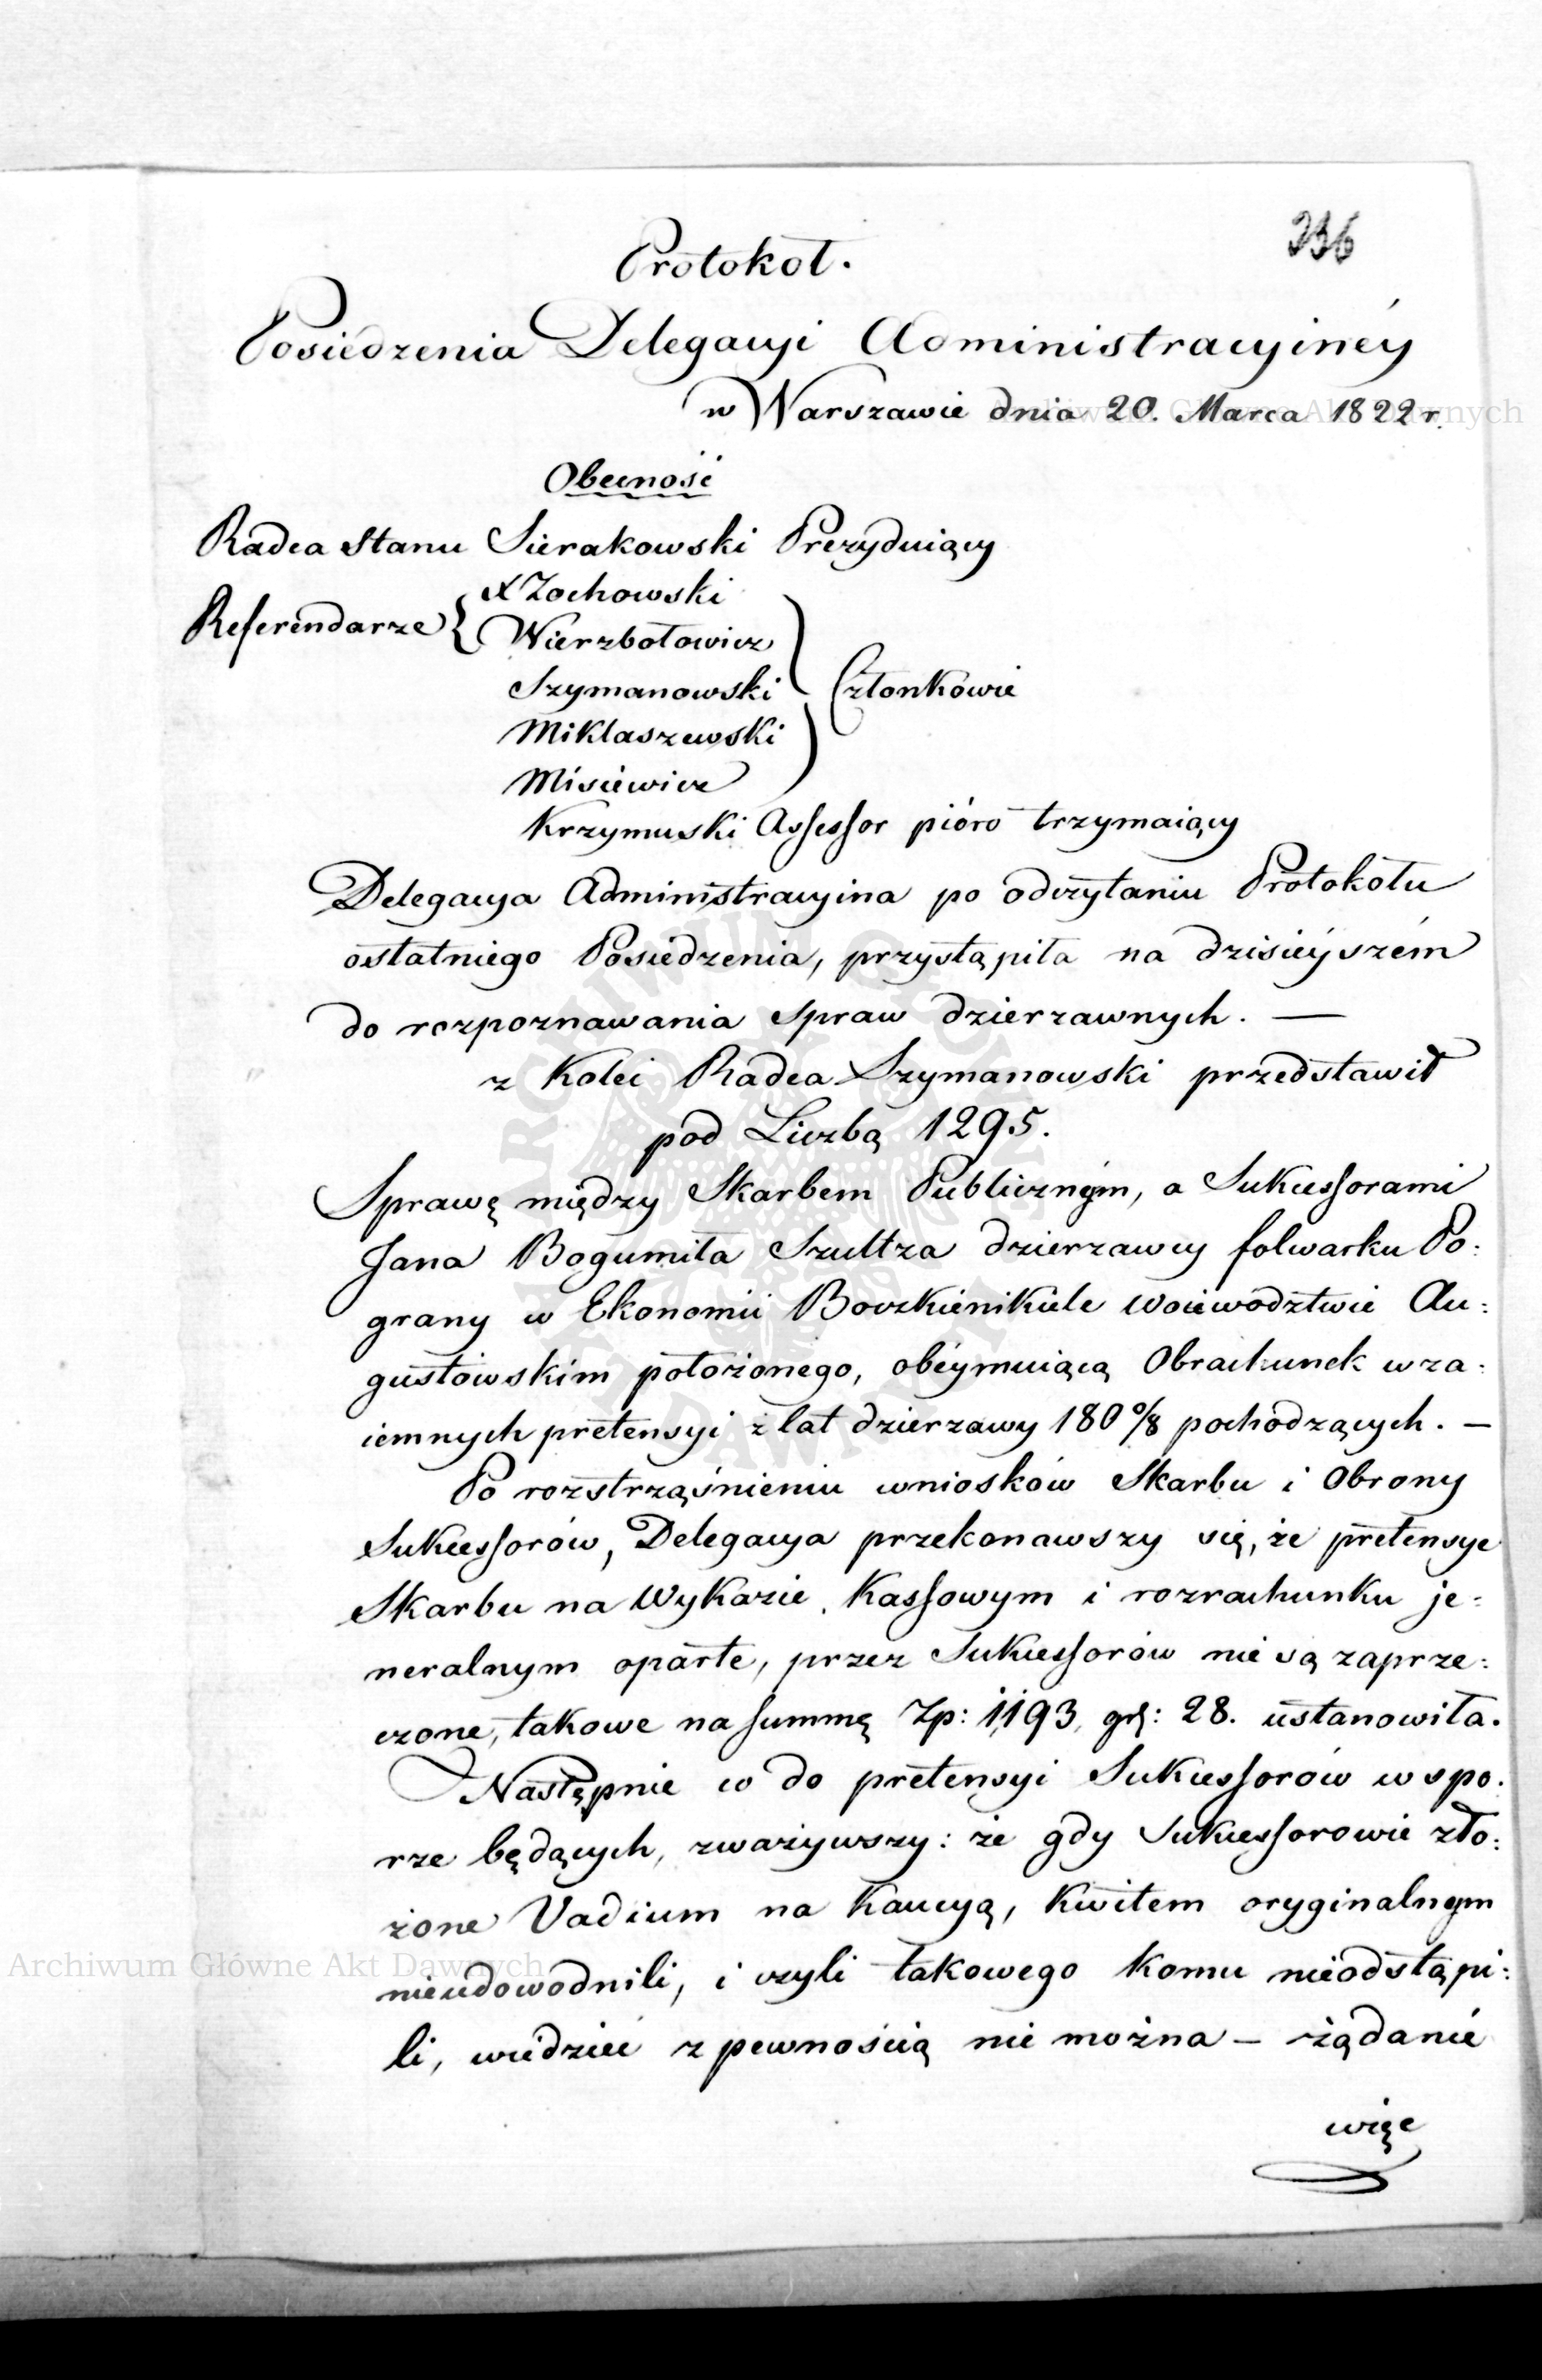 236
Protokoł.
Posiedzenia Delegacyi Administracyiney
w Warszawie dnia 20. Marca 1822 r.
Obecność
Radca Stanu Sierakowski Prezyduiący
X Zochowski
Referendarze { Wierzbołowicz
Szymanowski } Członkowie
Miklaszewski
Misiewicz
Krzymuski Assessor pióro trzymaiący
Delegacya Administracyina po odczytaniu Protokołu
ostatniego Posiedzenia, przystąpiła na dzisieyszém
do rozpoznawania spraw dzierzawnych. —
z Kolei Radca Szymanowski przedstawił
pod Liczbą 1295.
Sprawę między Skarbem Publicznym, a Sukcessorami
Jana Bogumiła Szultza dzierzawcy folwarku Po:
grany w Ekonomii Bovzkienikiele Woiewództwie Au:
gustowskim położonego, obeymuiącą Obrachunek wza:
iemnych pretensyi z lat dzierzawy 180 6/8 pochodzących. —
Po rozstrząśnieniu wniosków Skarbu i Obrony
Sukcessorów, Delegacya przekonawszy się, że pretensye
Skarbu na Wykazie Kassowym i rozrachunku je:
neralnym oparte, przez Sukcessorów nie są zaprze:
czone, takowe na summę Zp: 1,193, gr: 28. ustanowiła.
Następnie co do pretensyi Sukcessorów w spo:
rze będących, zważywszy: że gdy Sukcessorowie zło:
żone Vadium na Kaucyą, Kwitem oryginalnym
nieudowodnili, i czyli takowego komu nieodstąpi:
li, wiedzieć z pewnością nie można — żądanie
więc
Archiwum Główne Akt Dawnych
Archiwum Główne Akt Dawnych